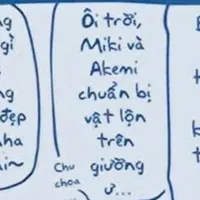 ng
gì
ng
đẹp
nha
Ôi trời,
Miki và
Akemi
chuẩn bị
vật lộn
trên
giường
ư...
Chu
choa